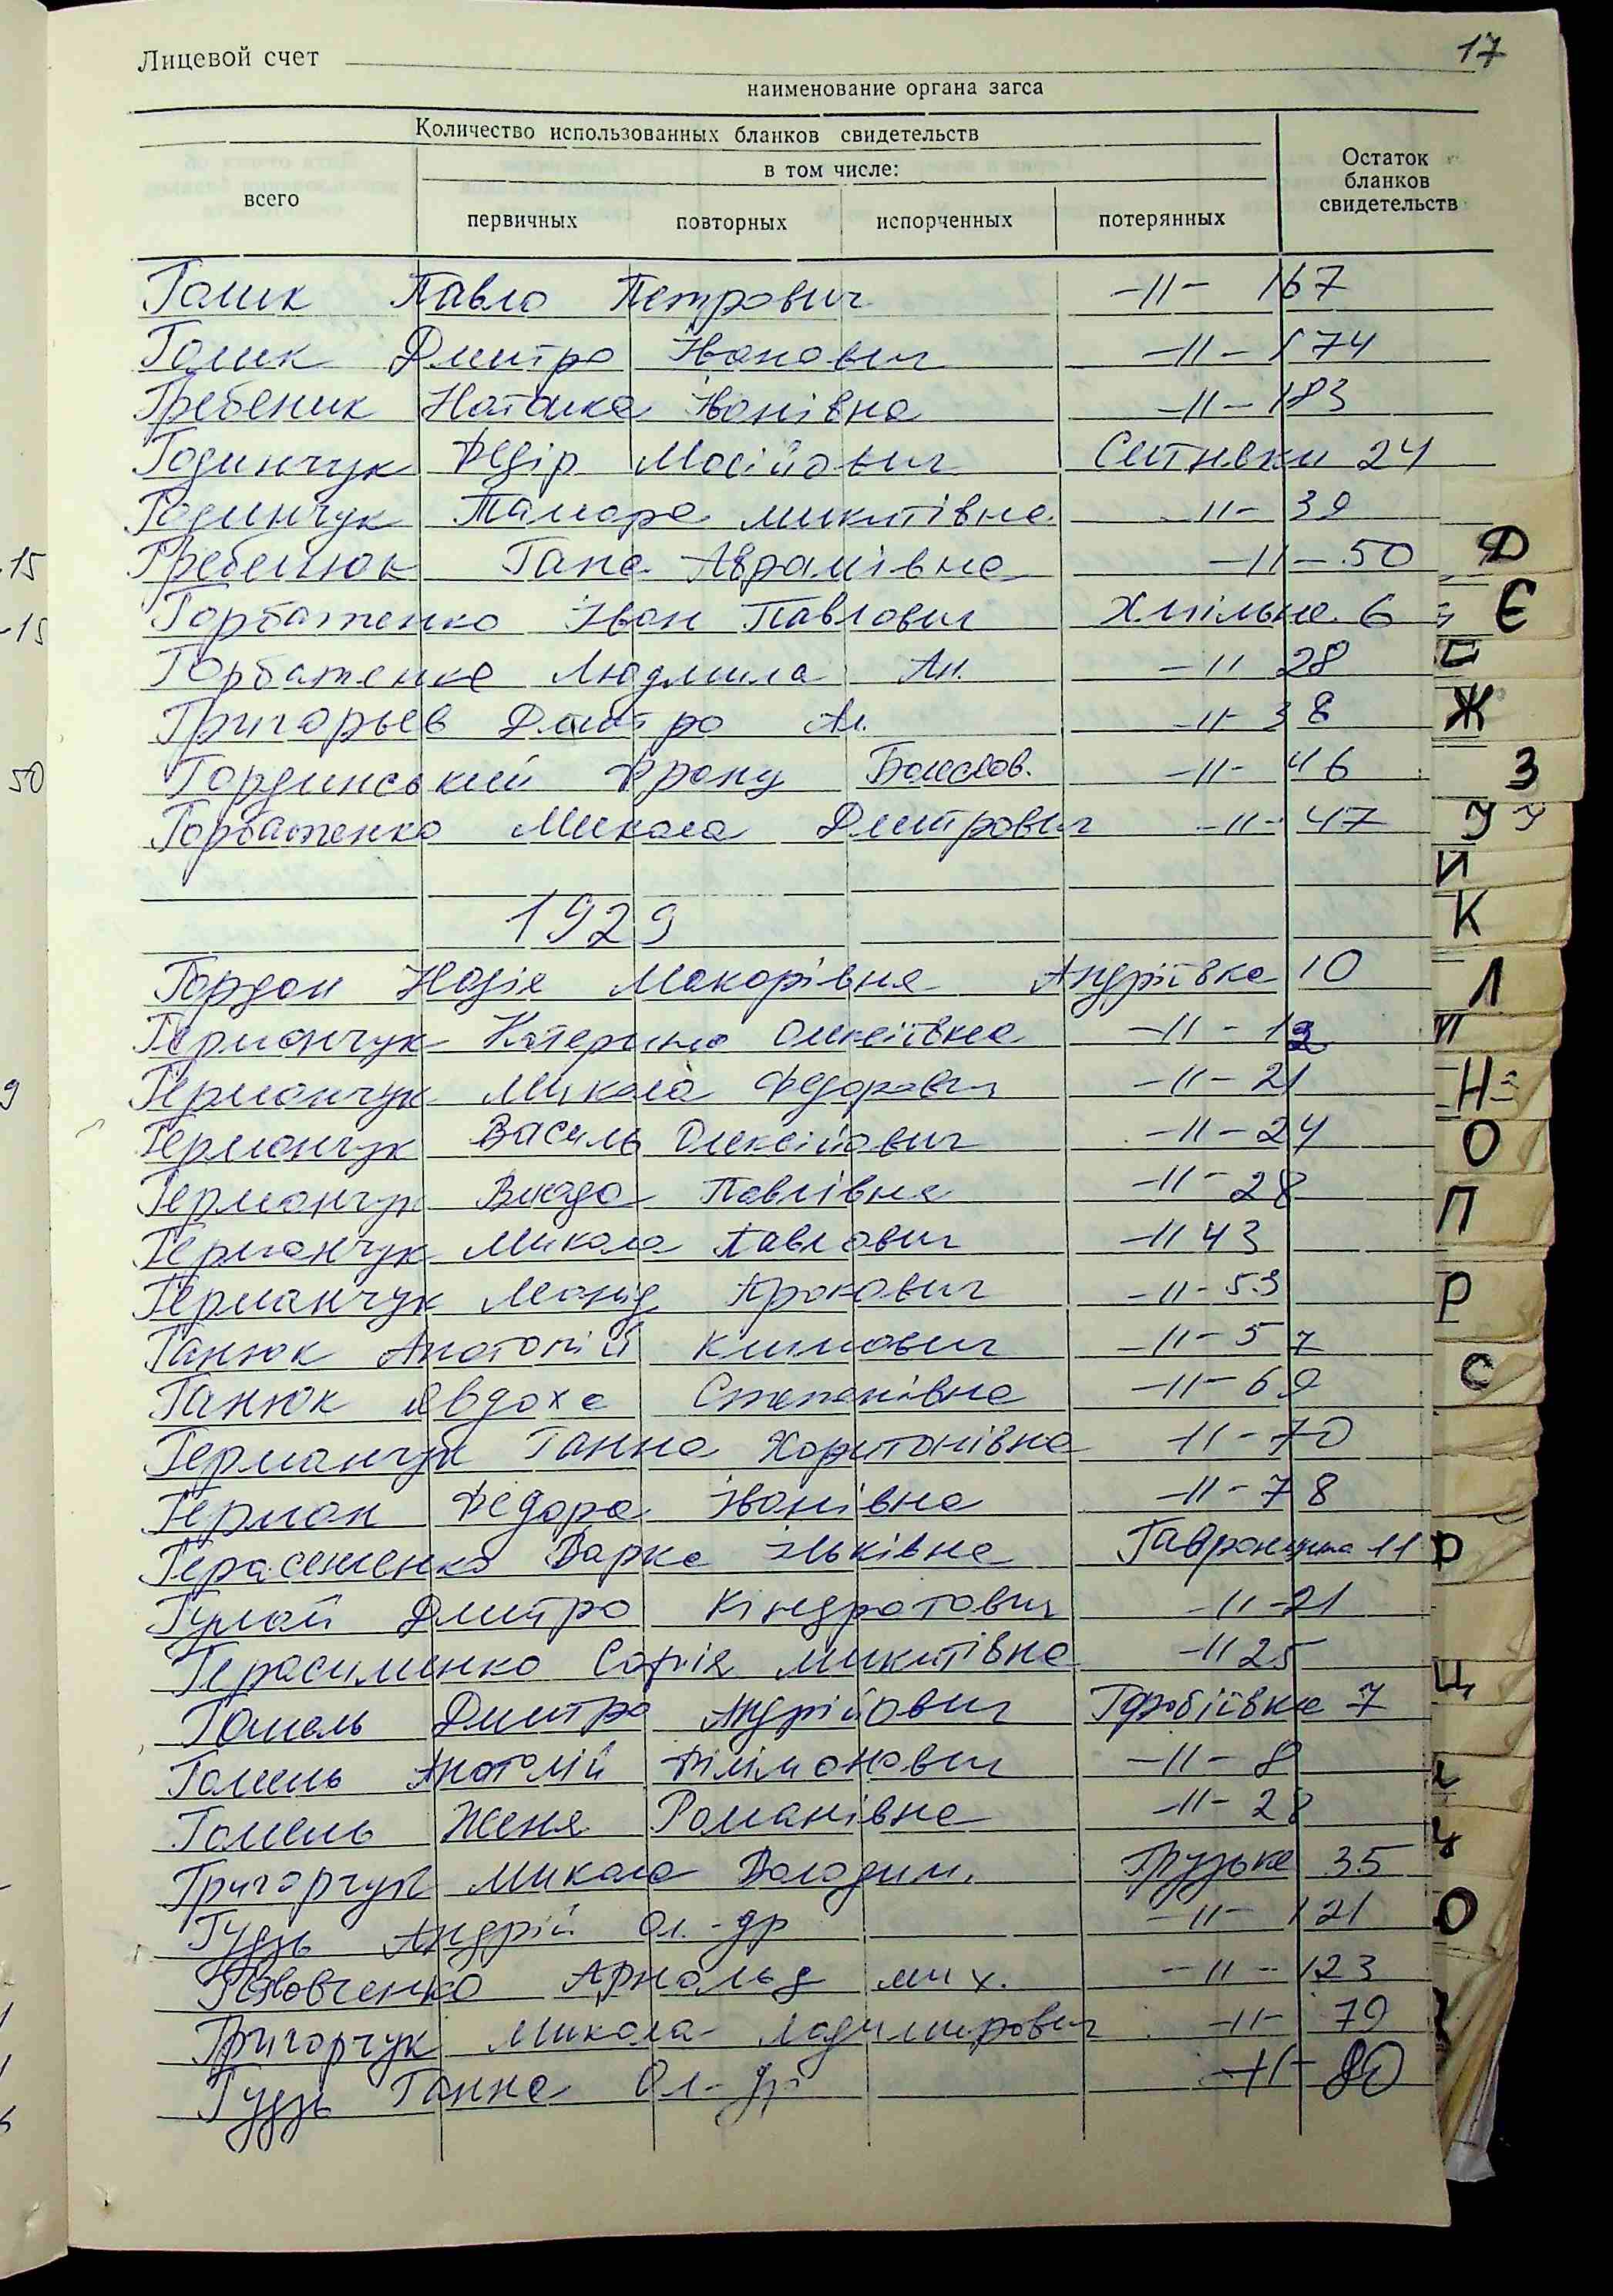 17
Лицевой счет
наименование органа загса
Количество использованных бланков свидетельств
в том числе:
всего
первичных повторных испорченных потерянных
Остаток бланков свидетельств
Голик Павло Петрович -11- 167
Голик Дмитро Іванович -11- 174
Гребеник Наталка Іванівна -11- 183
Годинчук Федір Мосійович Ситневки 24
Годинчук Тамара Микитівна -11- 39
Гребенюк Гана Аврамівна -11- 50
Горбатенко Іван Павлович Хмільна 6
Горбатенко Людмила Ан. -11 28
Григорьев Дмитро Ан. -11- 38
Гординський Франц Болеслов. -11- 46
Горбатенко Микола Дмитрович -11- 47
1929
Гордон Надія Макарівна Андріївка 10
Германчук Катерина Олексіївна -11- 12
Германчук Микола Федорович -11- 21
Германчук Василь Олексійович -11- 24
Германчук Влада Павлівна -11- 28
Германчук Микола Павлович -11 43
Германчук Леонід Аронович -11- 53
Ганюк Анатолій Климович -11- 57
Ганюк Явдоха Степанівна -11- 69
Германчук Ганна Харитонівна -11- 70
Герман Федора Іванівна -11- 78
Герасеменко Варка Ільківна 11
Гулай Дмитро Кіндратович -11- 21
Герасименко Софія Микитівна -11 25
Гомель Дмитро Андрійович Горобіївка 7
Гомель Анатолій Філімонович -11- 8
Гомель Женя Романівна -11- 28
Григорчук Микола Володим. Грузька 35
Гудзь Андрій Ол-др -11- 121
Арнольд мих. -11- 123
Григорчук Микола Ладимирович -11- 79
Гудзь Ганна Ол-др -11- 80
15
15
50
9
Д
Є
Ж
З
У
И
К
Л
М
Н
О
П
Р
С
Ц